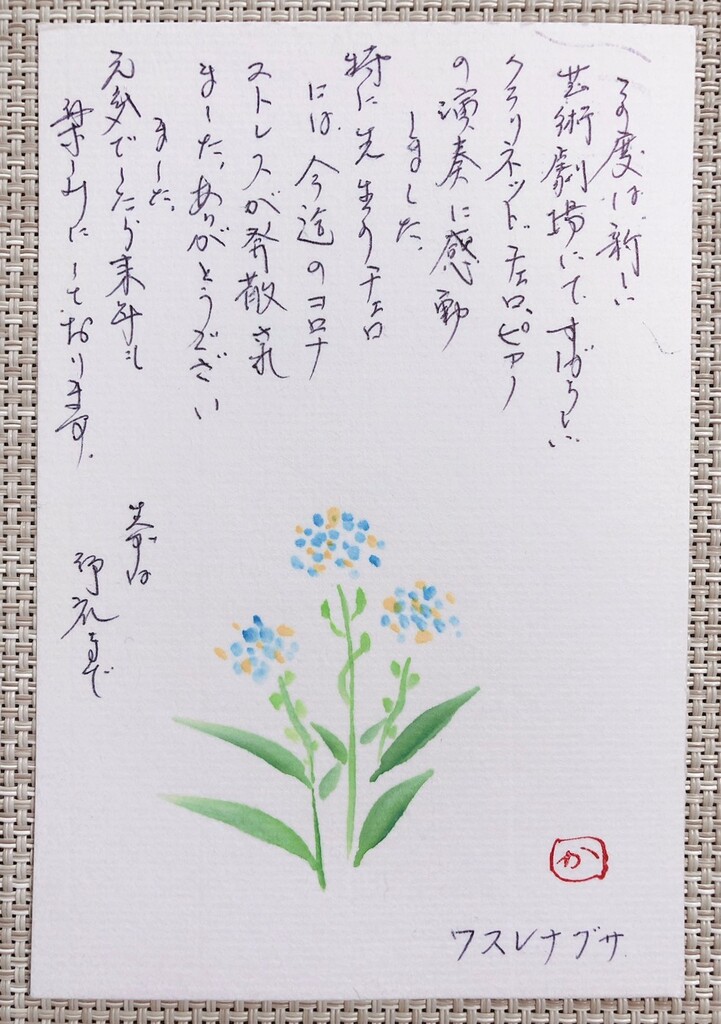 この度は、新しい
芸術劇場にて、すばらしい
クラリネット、チェロ、ピアノ
の演奏に感動
しました。
特に先生のチェロ
には、今迄のコロナ
ストレスが発散され
ました。ありがとうござい
ました。
元気でしたら来年も
楽しみにしております。
まずは
御礼まで
か
ワスレナグサ